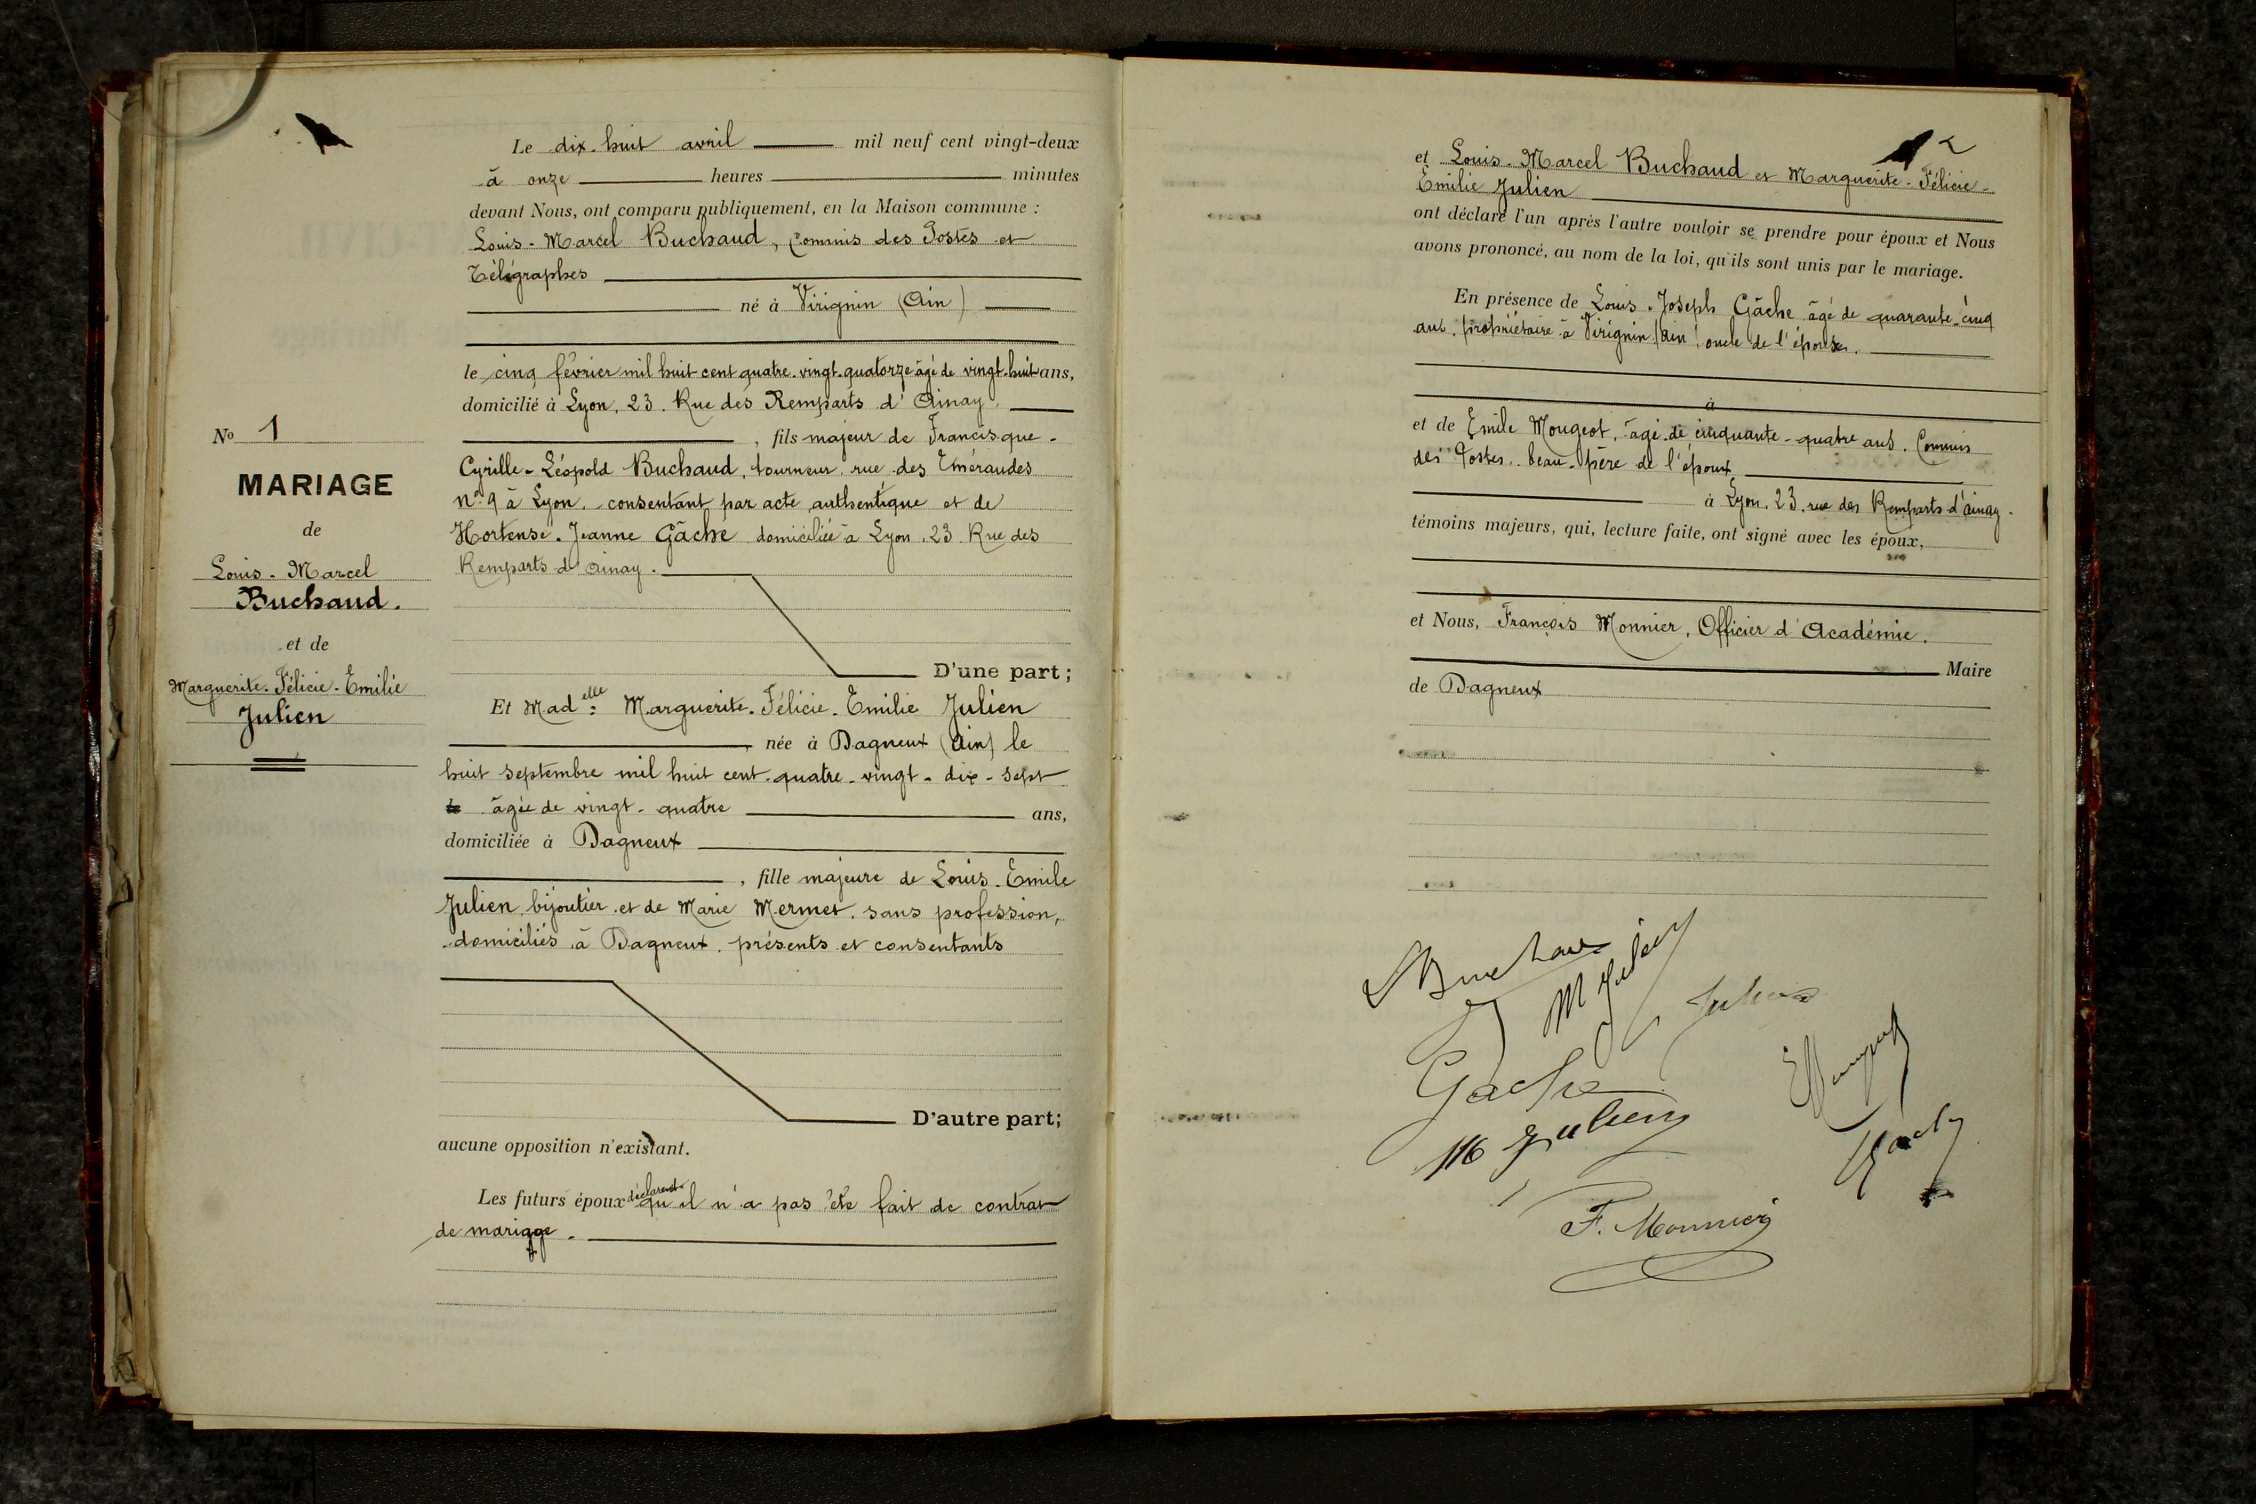 Le dix-huit avril mil neuf cent vingt-deux
à onze heures minutes
devant Nous, ont comparu publiquement, en la Maison commune :
Louis-Marcel Buchaud, Commis des Postes et
Télégraphes
né à Virignin (Ain)
le cinq février mil huit cent quatre-vingt-quatorze âgé de vingt-huit ans,
domicilié à Lyon, 23. Rue des Remparts d'Ainay
, fils majeur de Francisque-
Cyrille-Léopold Buchaud, tourneur, rue des Emeraudes
n° 9 à Lyon, consentant par acte authentique et de
Hortense-Jeanne Gâche domiciliée à Lyon, 23 Rue des
Remparts d'Ainay.
D'une part;
Et Mad.elle Marguerite-Félicie-Emilie Julien
, née à Dagneux (Ain) le
huit septembre mil huit cent quatre-vingt-dix-sept
âgée de vingt-quatre ans,
domiciliée à Dagneux
, fille majeure de Louis-Emile
Julien, bijoutier et de Marie Mermet, sans profession,
domiciliés à Dagneux, présents et consentants
D'autre part;
aucune opposition n'existant.
Les futurs époux déclarent qu'il n'a pas été fait de contrat
de mariage.
No 1
MARIAGE
de
Louis-Marcel
Buchaud.
et de
Marguerite-Félicie-Emilie
Julien
2
et Louis-Marcel Buchaud et Marguerite-Félicie-
Emilie Julien
ont déclaré l'un après l'autre vouloir se prendre pour époux et Nous
avons prononcé, au nom de la loi, qu'ils sont unis par le mariage.
En présence de Louis-Joseph Gâche âgé de quarante-cinq
ans, propriétaire à Virignin (Ain) oncle de l'époux.
à
et de Emile Mougeot, âgé de cinquante-quatre ans, Commis
des Postes, beau-père de l'époux
à Lyon, 23, rue des Remparts d'Ainay.
témoins majeurs, qui, lecture faite, ont signé avec les époux,
et Nous, François Monnier, Officier d'Académie.
Maire
de Dagneux
LBuchaud
M Julien
Julien
Gache
EMougeot
M Julien
Gache
F. Monnier